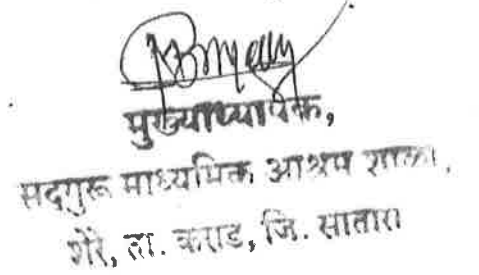 मुख्याध्यापक,
सदगुरू माध्यमिक आश्रम शाळा,
शेरे, ता. कराड, जि. सातारा